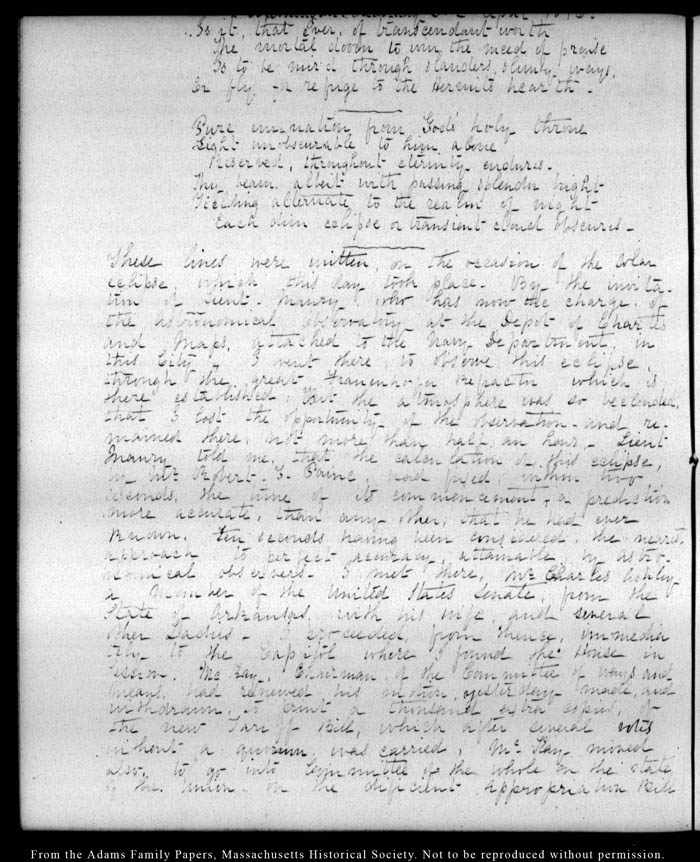 Is it, that ever, of transcendant worth
The mortal doom to win the meed of praise
Is to be mir'd through slanders, slimy ways,
Or fly for refuge to the Hermits hearth.
Pure emination from God's holy throne
Light unobscurable to him above
Preserved, throughout eternity endures.
Thy beam, albeit with passing splendor bright
Yielding alternate to the realm of night
Each dim eclipse or transient cloud obscures.
These lines were written, on the occasion of the Solar
eclipse, which this day took place. By the invita-
tion of Lieut. Maury, who has now the charge of
the Astronomical Observatory at the Depot of Charts
and Maps, attached to the Navy Department, in
this City, I went there, to observe this eclipse,
through the great Frauenhofer Refractor which is
there established, but the atmosphere was so beclouded,
that I lost the opportunity of the observation and re-
mained there not more than half an hour. Lieut
Maury told me, that the calculation of this eclipse,
by Mr. Robert T. Paine, had fixed within two
seconds the time of its commencement, a prediction
more accurate, than any other, that he had ever
known. Ten seconds having been considered, the nearest
approach to perfect accuracy, attainable by astro-
nomical observers. I met there, Mr. Charles Ashley
a Member of the United States Senate, from the
State of Arkansas, with his wife and several
other Ladies. I proceeded, from thence, immedia
tely to the Capitol where I found the House in
session. McKay, Chairman of the Committee of ways and
means, had renewed his motion, yesterday made, and
withdrawn, to print a thousand extra copies, of
the new Tariff Bill, which after several votes
without a quorum, was carried, McKay moved
also, to go into Committee of the whole on the state
of the Union on the deficient appropriation Bill
From the Adams Family Papers, Massachusetts Historical Society. Not to be reproduced without permission.